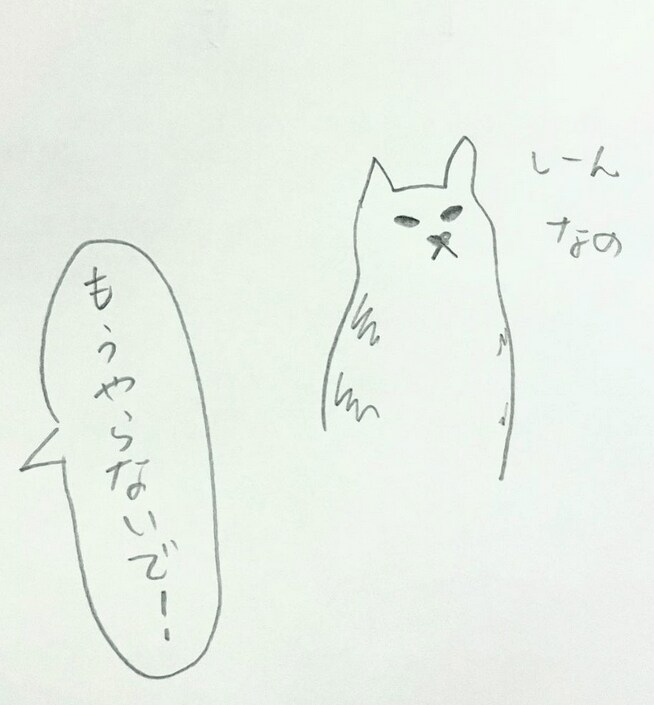 しーん
なの
もうやらないでー